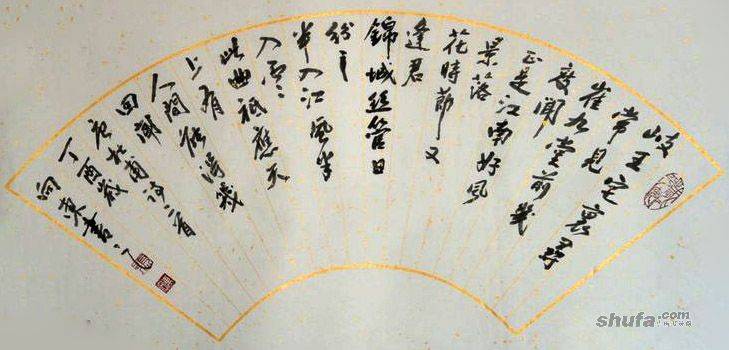 岐王宅裏尋
常見
崔九堂前幾
度聞
正是江南好風
景落
花時節又
逢君
錦城絲管日
紛々
半入江風半
入雲
此曲祇應天
上有
人間能得幾
回聞
唐杜甫詩二首
丁酉歲
向東書
shufa.com